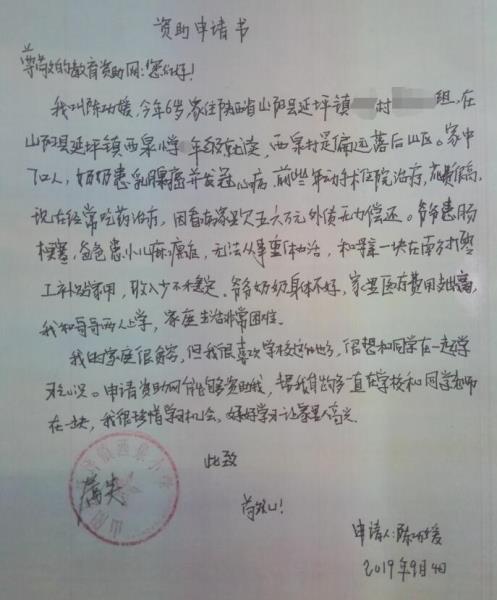 资助申请书
尊敬的教育资助网：您们好！
我叫陈功媛，今年6岁，家住陕西省山阳县延坪镇 村 组，在
山阳县延坪镇西泉小学 年级就读，西泉村是偏远落后山区。家中
口人，奶奶患乳腺癌并发冠心病，前些年动手术住院治疗，花费很高，
现在经常吃药治疗，因看病家里欠五六万元外债无力偿还。爷爷患肠
梗塞，爸爸患小儿麻痹症，无法从事重体力活，和母亲一块在南方打零
工补贴家用，收入少不稳定。爷爷奶奶身体不好，家里医疗费用支出高，
我和哥哥两人上学，家庭生活非常困难。
我的家庭很贫穷，但我很喜欢学校这个地方，很想和同学在一起学
习知识。申请资助网能够资助我，帮我能够一直在学校和同学老师
在一块，我很珍惜学习机会，好好学习让家里人高兴。
此致
敬礼！
属实
申请人：陈功媛
2019年9月4日